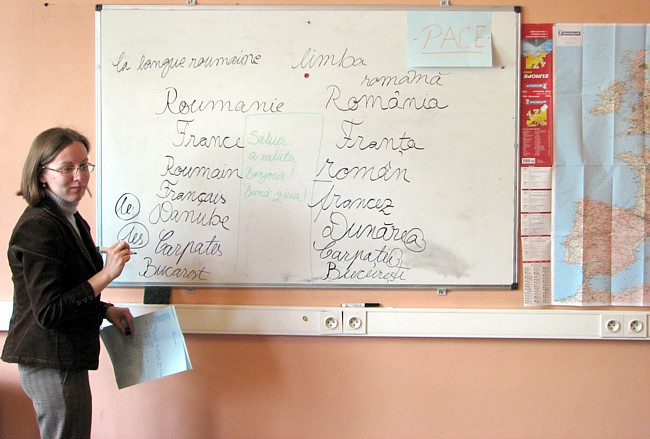 - PACE -
la langue roumaine limba
română
Roumanie România
France Franța
Roumain român
Français francez
le Danube Dunărea
les Carpates Carpații
Bucarest București
Salua
a saluta
Bonjour!
Bună ziua!
EUROPE